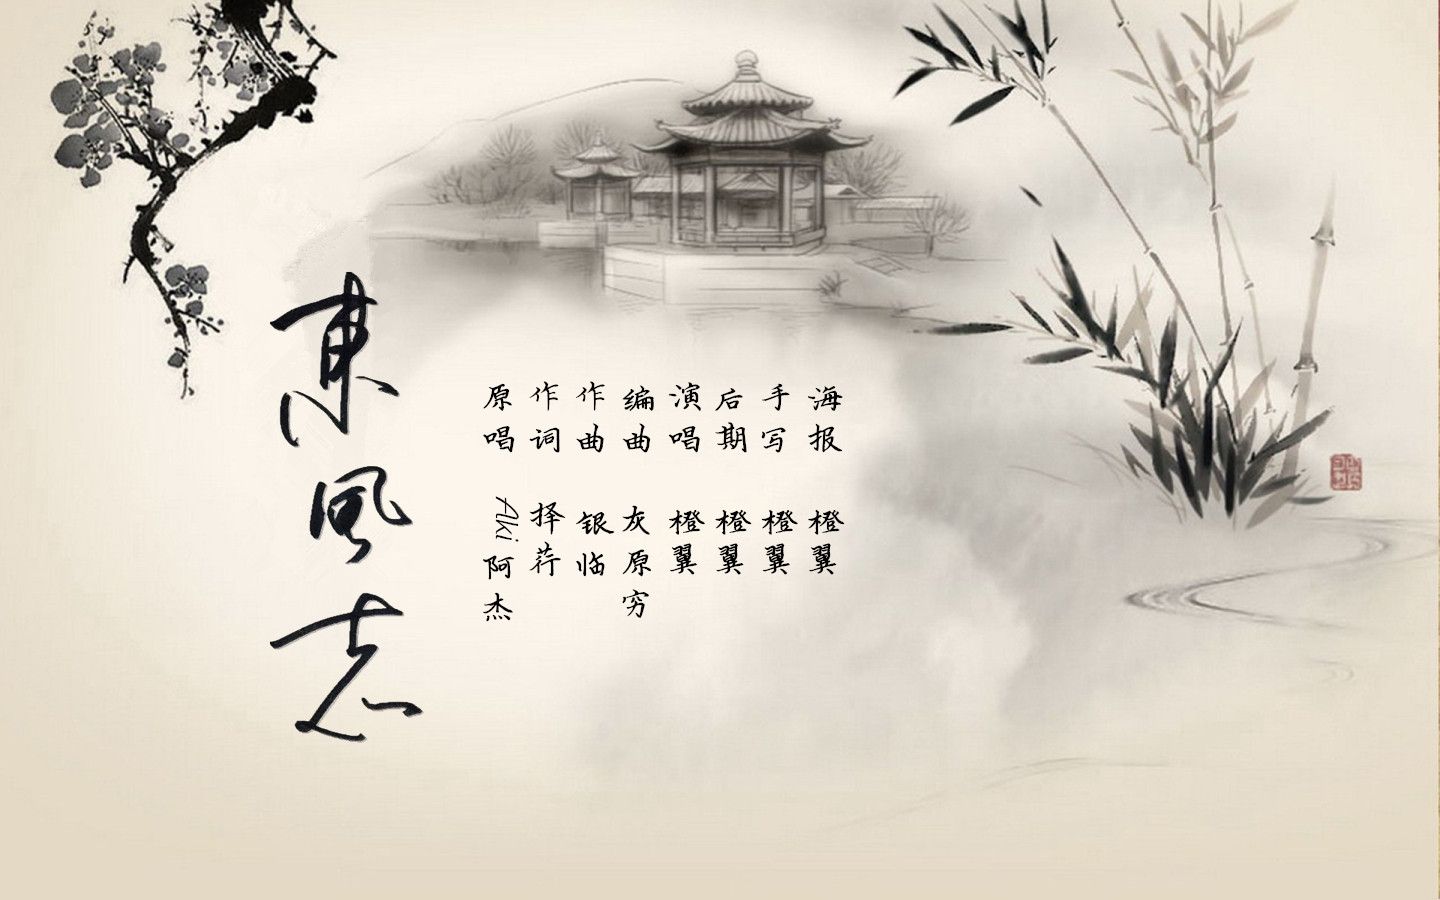 東風志
原唱 Aki阿杰
作词 择荇
作曲 银临
编曲 灰原穷
演唱 橙翼
后期 橙翼
手写 橙翼
海报 橙翼